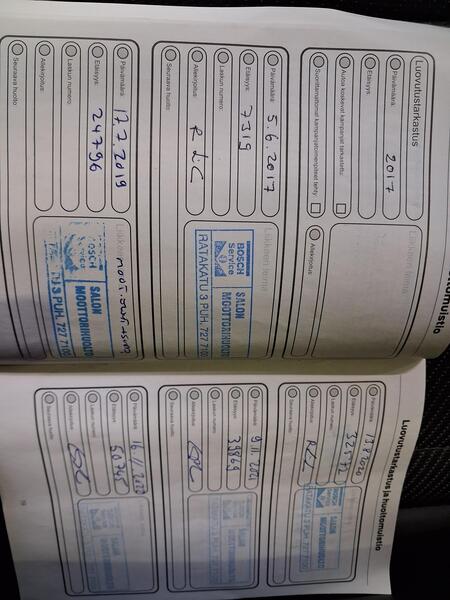 Luovutustarkastus
Päivämäärä: 2017
Etäisyys:
Autoa koskevat kampanjat tarkastettu:
Suorittamattomat kampanjatoimenpiteet tehty:
Allekirjoitus:
Päivämäärä: 5.6.2017
Etäisyys: 7319
Laskun numero:
Allekirjoitus:
Seuraava huolto:
Liikkeen leima
BOSCH
Service
SALON
MOOTTORIHUOLTO
RATAKATU 3 PUH. 727 7100
Päivämäärä: 17.7.2019
Etäisyys: 24796
Laskun numero:
Allekirjoitus:
Seuraava huolto:
Liikkeen
BOSCH
Service
SALON
MOOTTORIHUOLTO
3 PUH. 727 7100
Luovutustarkastus ja huoltomuistio
Päivämäärä:
Etäisyys:
Laskun numero:
Allekirjoitus:
Seuraava huolto:
SALON
MOOTTORIHUOLTO
RATAKATU 3 PUH. 727 7100
Päivämäärä:
Etäisyys: 33869
Laskun numero:
Allekirjoitus:
Seuraava huolto:
SALON
MOOTTORIHUOLTO
Päivämäärä:
Etäisyys: 50765
Laskun numero:
Allekirjoitus:
Seuraava huolto:
SALON
MOOTTORIHUOLTO